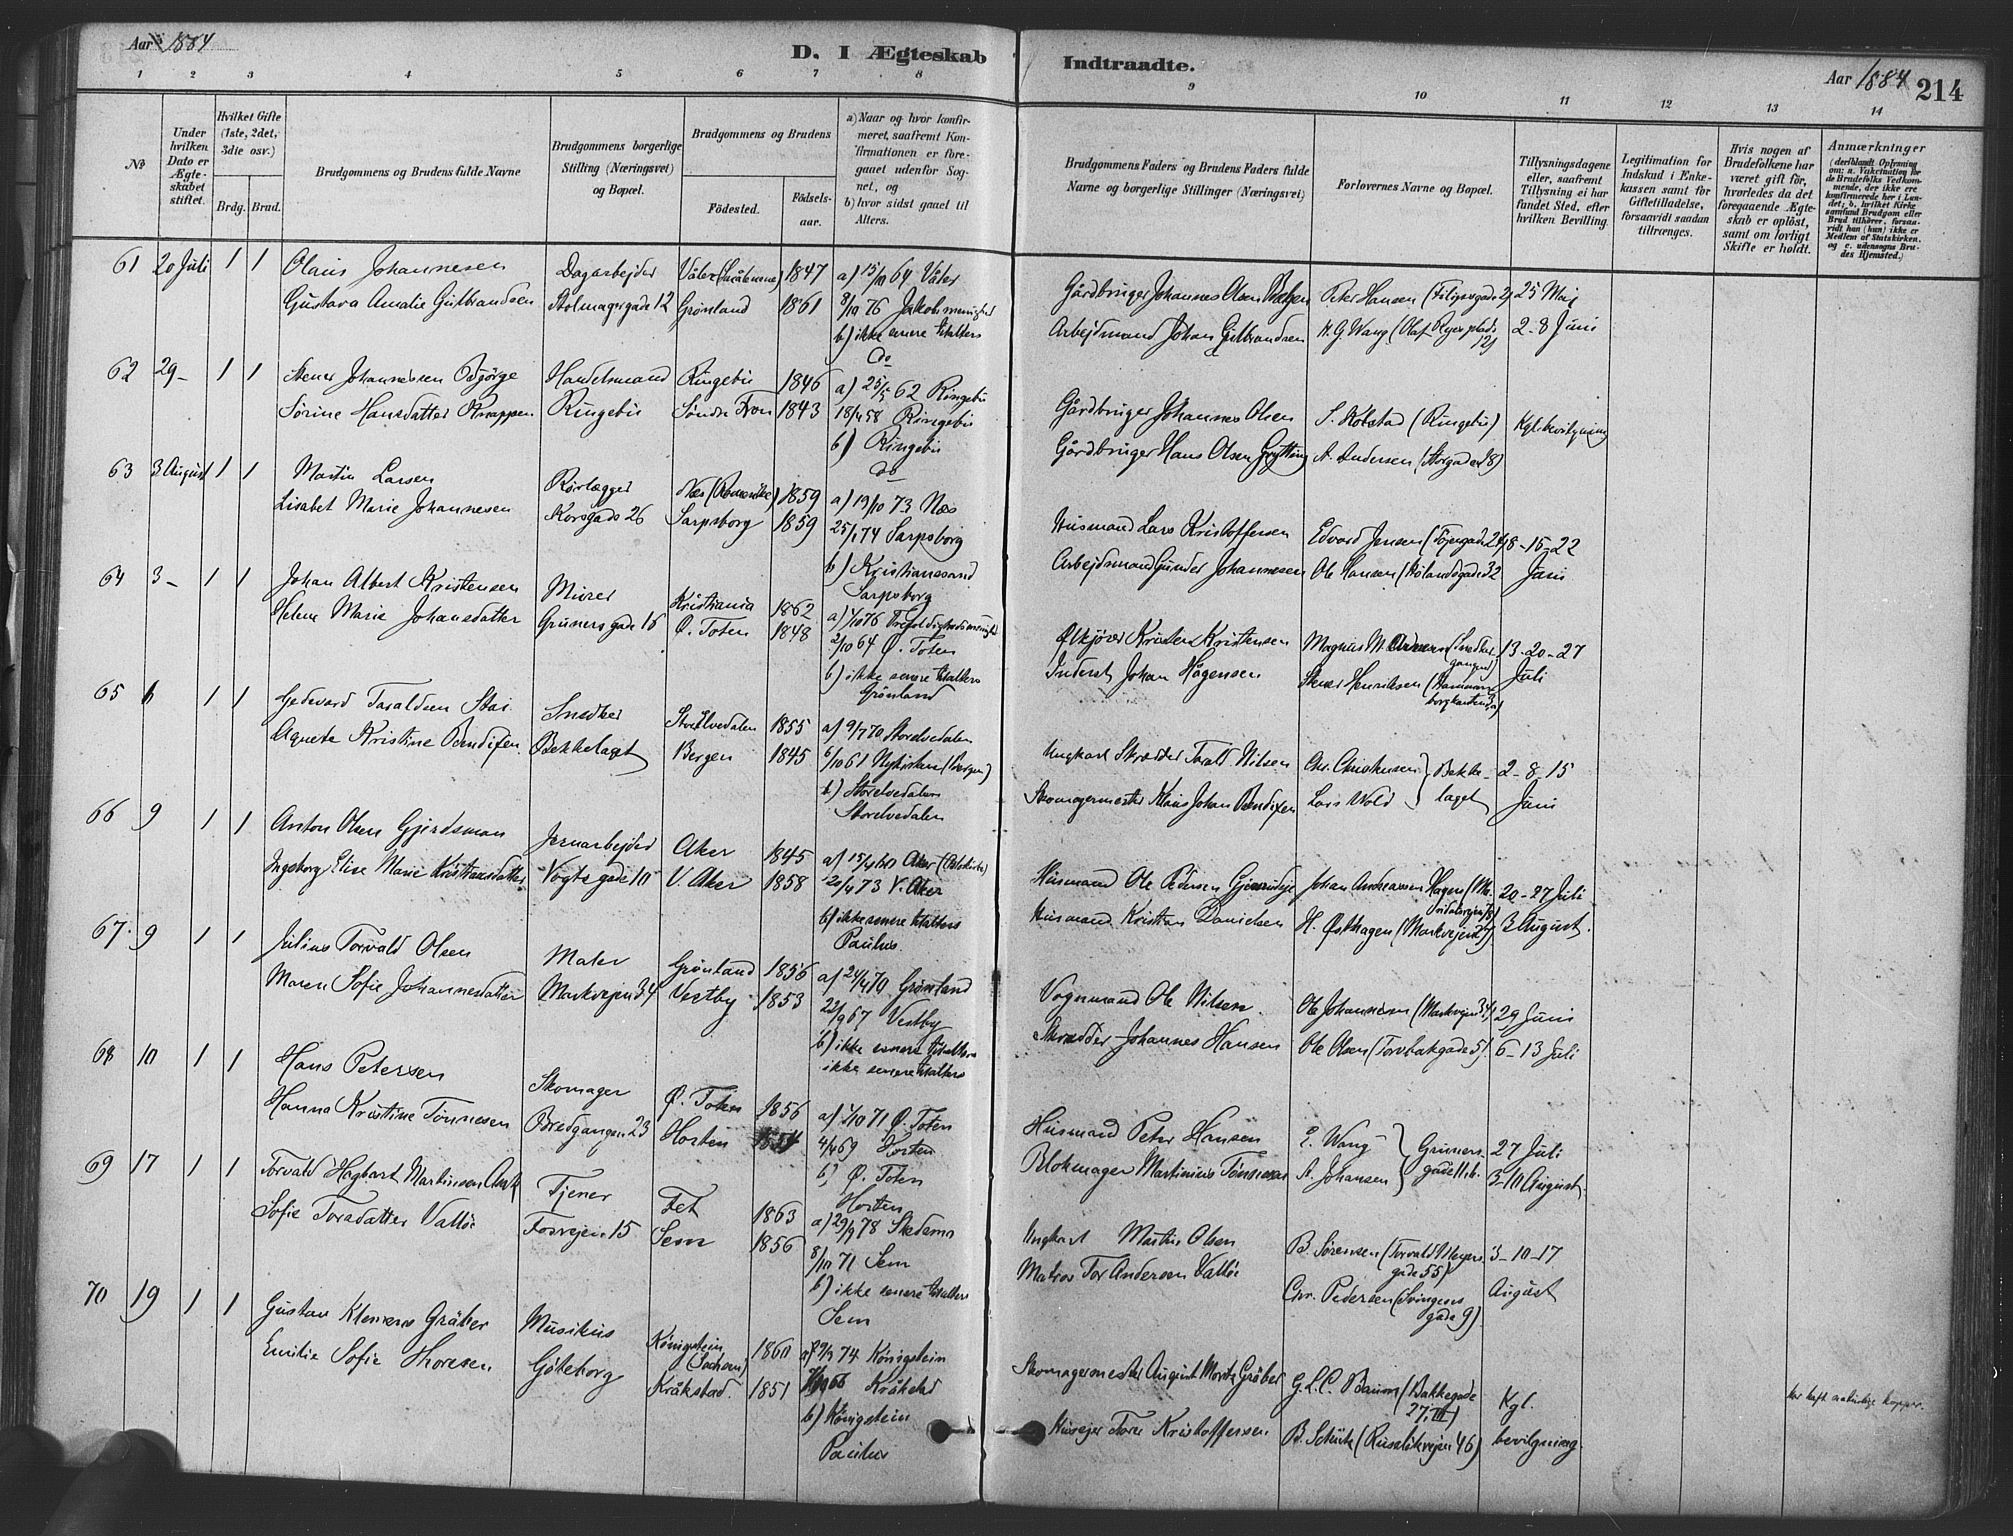 Aar 1884
D. I Ægteskab Indtraadte.
Aar 1884 214
1 2 3 4 5 6 7 8 9 10 11 12 13 14
No
Under hvilken Dato er Ægteskabet stiftet.
Hvilket Gifte (1ste, 2det, 3die osv.)
Brdg. Brud.
Brudgommens og Brudens fulde Navne
Brudgommens borgerlige Stilling (Næringsvei) og Bopæl.
Brudgommens og Brudens
Födested. Födselsaar.
a) Naar og hvor konfirmeret, saafremt Konfirmationen er foregaaet udenfor Sognet, og
b) hvor sidst gaaet til Alters.
Brudgommens Faders og Brudens Faders fulde Navne og borgerlige Stillinger (Næringsvei)
Forlovernes Navne og Bopæl.
Tillysningsdagene eller, saafremt Tillysning ei har fundet Sted, efter hvilken Bevilling.
Legitimation for Indskud i Enkekassen samt for Giftetilladelse, forsaavidt saadan tiltrænges.
Hvis nogen af Brudefolkene har været gift för, hvorledes da det foregaaende Ægteskab er oplöst, samt om lovligt Skifte er holdt.
Anmærkninger
61 20 Juli 1 1 Olaus Johannesen Dagarbejder Våler 1847 a) 15/10 64 Våler Gårdbruger Johannes Olsen Peter Hansen 25 Maj
Gustava Amalie Gulbrandsen Stolmagergade 12 Grønland 1861 8/10 76 Jakobs menighed Arbejdsmand Johan Gulbrandsen H. G. Wang (Olaf Ryes plads 12) 2-8 Juni
b) ikke senere til alters
do
62 29- 1 1 Stener Johannesen Bjørge Handelsmand Ringebu 1846 a) 25/5 62 Ringebu Gårdbruger Johannes Olsen S. Kolstad (Ringebu) Kgl. bevilgning
Sørine Hansdatter Ringebu Søndre Fron 1843 18/4 58 Ringebu Gårdbruger Hans Olsen A. Andersen (Storgaden 8)
b) Ringebu
do
63 3 August 1 1 Martin Larsen Rørlægger Næs (Romerike) 1859 a) 19/10 73 Næs Husmand Lars Kristoffersen Edvard Jensen (Tøiengade 24) 8-15-22
Lisabet Marie Johannesen Korsgade 26 Sarpsborg 1859 25/1 74 Sarpsborg Arbejdsmand Gunder Johannesen Ole Hansen 32 Juni
b) Kristianssand
Sarpsborg
64 3- 1 1 Johan Albert Kristensen Murer Kristiania 1862 a) 1/10 76 Trefoldighedsmenighed Ølkjører Kristen Kristensen Magnus M. 13-20-27
Helene Marie Johansdatter Gruners gade 16 Ø. Toten 1848 2/10 64 Ø. Toten Inderst Johan Hågensen Henriksen Juli
b) ikke senere til alters
Grønland
65 6 1 1 Taraldsen Stai Snedker Storelvedalen 1855 a) 9/7 70 Storelvedalen Ungkarl Skrædder Tarald Nilsen Chr. Christensen Bekkelaget 2-8-15
Agnete Kristine Bendixen Bekkelaget Bergen 1845 6/10 61 Nykirken (Bergen) Skomagermester Klaus Johan Bendixen Lars Wold Juni
b) Storelvedalen
Storelvedalen
66 9 1 1 Anton Olsen Gjerdsman Jernarbejder Aker 1845 a) 15/4 60 Aker Husmand Ole Pedersen Johan Andreassen Hagen 20-27 Juli
Ingeborg Elise Marie Kristiansdatter Vogts gade 10 V. Aker 1858 20/4 73 V. Aker Husmand Kristian Danielsen H. Østhagen (Markvejen) 3 August.
b) ikke senere til alters
Paulus
67. 9 1 1 Julius Torvald Olsen Maler Grønland 1856 a) 24/4 70 Grønland Vognmand Ole Nilsen Ole Johannesen (Markvejen 34) 29 Juni
Maren Sofie Johannesdatter Markvejen 34 Vestby 1853 22/9 67 Vestby Skrædder Johannes Hansen Ole Olsen (Torvbakgade 5) 6-13 Juli
b) ikke senere til alters
ikke senere til alters
68 10 1 1 Hans Petersen Skomager Ø. Toten 1856 a) 1/10 71 Ø. Toten Husmand Peter Hansen E. Wang Gruners gade 11 b. 27 Juli
Hanna Kristine Tønnesen Bredgangen 23 Horten 1854 4/4 69 Horten Blokmager Martinius Tønnesen A. Johansen 3-10 August.
b) Ø. Toten
Horten
69 17 1 1 Torvald Hagbart Martinsen Tjener Fet 1863 a) 29/9 78 Skedsmo Ungkarl Martin Olsen B. Sørensen (Torvald Meyers gade 55) 3-10-17
Sofie Torsdatter Valløe Fosvejen 15 Sem 1856 8/10 71 Sem Matros Tor Andersen Valløe Chr. Pedersen (Svingens gade 9) August
b) ikke senere til alters
Sem
70 19 1 1 Gustav Klemens Gräber Musikus Königstein (Sachsen) 1860 a) 29/3 74 Königstein Skomagermester August Moritz Gräber G. L. C. Baum (Bakkegade 27, III) Kgl.
Emilie Sofie Thoresen Göteborg Kråkstad. 1851 66 Kråkstad Husejer Tore Kristoffersen B. Schück (Ruseløkvejen 46) bevilgning.
b) Königstein
Paulus
har haft naturlige kopper.